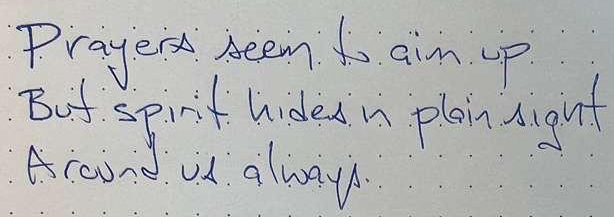 Prayers seem to aim up
But spirit hides in plain sight
Around us always.